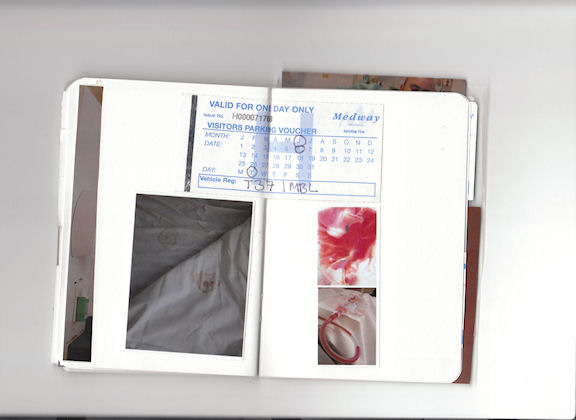 VALID FOR ONE DAY ONLY
Issue No. H00007176 Medway
VISITORS PARKING VOUCHER
MONTH: J F M A M J J A S O N D
DATE: 1 2 3 4 5 6 7 8 9 10 11 12
13 14 15 16 17 18 19 20 21 22 23 24
25 26 27 28 29 30 31
DAY: M T W T F S S
Vehicle Reg: T371 MBL